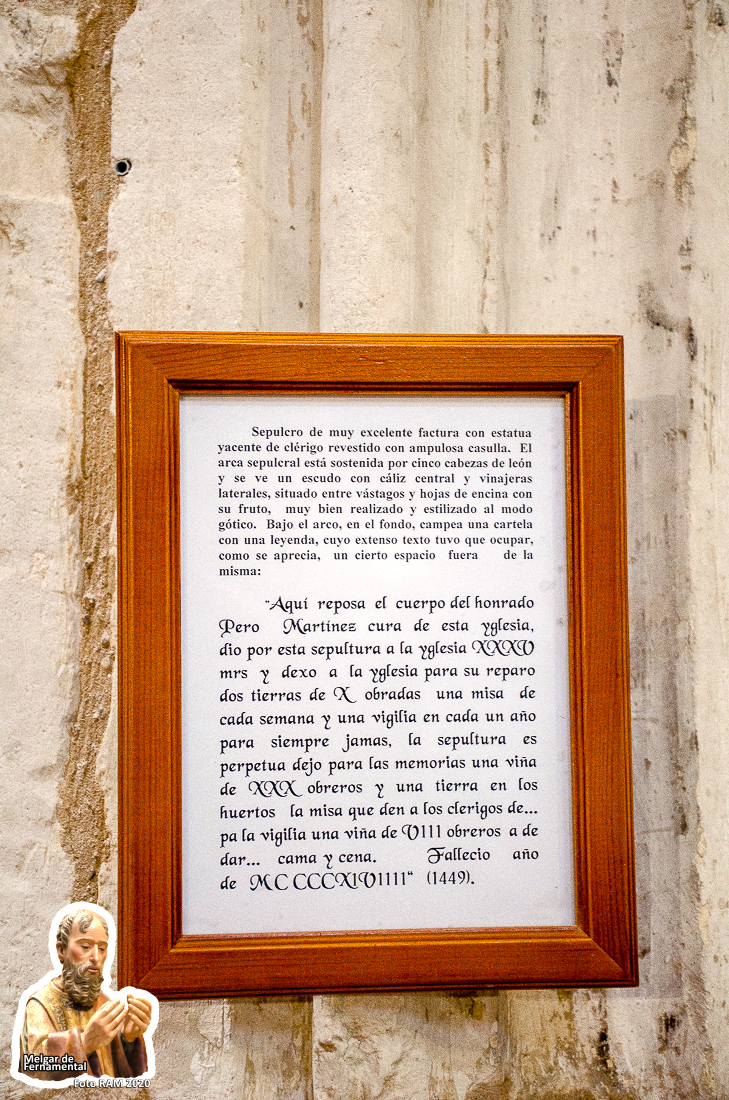 Sepulcro de muy excelente factura con estatua
yacente de clérigo revestido con ampulosa casulla. El
arca sepulcral está sostenida por cinco cabezas de león
y se ve un escudo con cáliz central y vinajeras
laterales, situado entre vástagos y hojas de encina con
su fruto, muy bien realizado y estilizado al modo
gótico. Bajo el arco, en el fondo, campea una cartela
con una leyenda, cuyo extenso texto tuvo que ocupar,
como se aprecia, un cierto espacio fuera de la
misma:
"Aquí reposa el cuerpo del honrado
Pero Martínez cura de esta yglesia,
dio por esta sepultura a la yglesia XXXV
mrs y dexo a la yglesia para su reparo
dos tierras de X obradas una misa de
cada semana y una vigilia en cada un año
para siempre jamas, la sepultura es
perpetua dejo para las memorias una viña
de XXX obreros y una tierra en los
huertos la misa que den a los clerigos de...
pa la vigilia una viña de VIII obreros a de
dar... cama y cena. Fallecio año
de MC CCCXIVIIII" (1449).
Melgar de
Fernamental
Foto RAM 2020